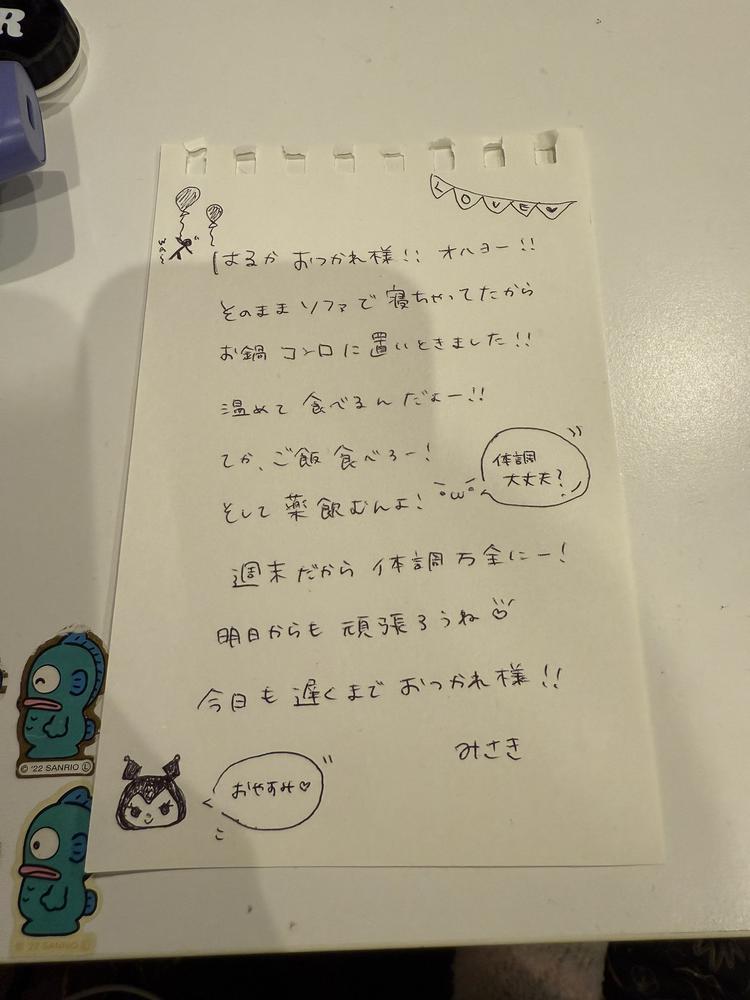 R
LOVE♥
wa~
はるか おつかれ様!! オハヨー!!
そのまま ソファで 寝ちゃってたから
お鍋 コンロに 置いときました!!
温めて 食べるんだよー!!
てか、ご飯 食べろー!
体調
大丈夫?
そして 薬 飲むんよ!
週末だから 体調 万全にー!
明日からも 頑張ろうね♡
今日も 遅くまで おつかれ様!!
みさき
おやすみ♡
© '22 SANRIO Ⓛ
© '22 SANRIO Ⓛ